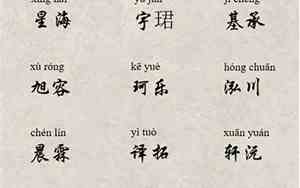 xīng hǎi yǔ jūn jī chéng
星海 宇珺 基承
xù róng kē yuè hóng chuān
旭容 珂乐 泓川
chén lín yì tuò xuān yuán
晨霖 铎拓 轩沅